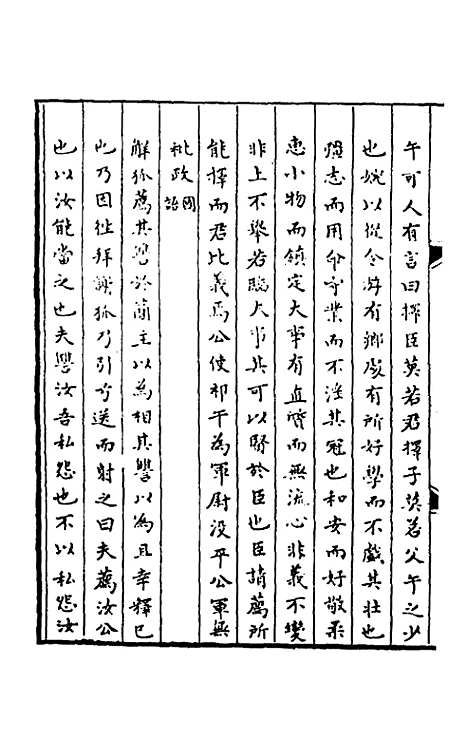 午可人有言曰擇臣莫若君擇子莫若父午之少
也婉以從令游有鄉處有所好學而不戲其壯也
彊志而用命守業而不淫其冠也和安而好敬柔
惠小物而鎮定大事有直質而無流心非義不變
非上不舉若臨大事其可以賢於臣也臣請薦所
能擇而君比義焉公使祁午為軍尉沒平公軍無
秕政國語
解狐薦其讐於簡主以為相其讐以為且幸釋已
也乃因往拜謝狐乃引弓送而射之曰夫薦汝公
也以汝能當之也夫讐汝吾私怨也不以私怨汝